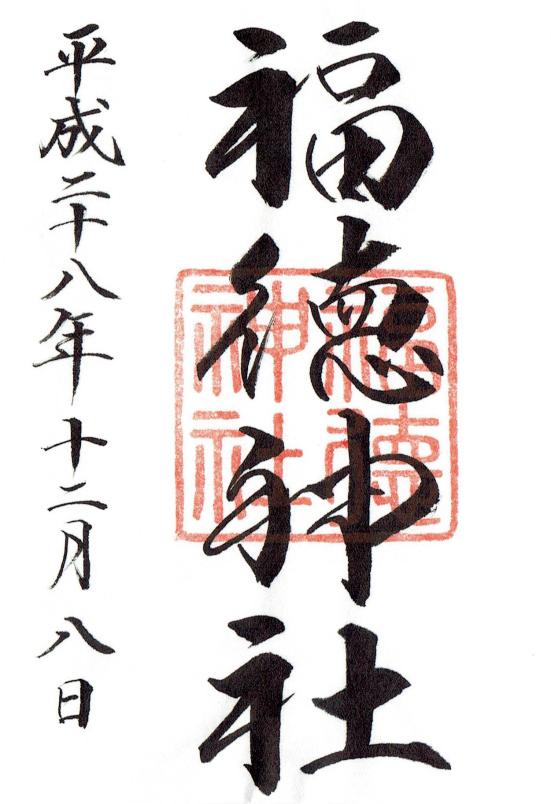 福徳神社
福徳神社
平成二十八年十二月八日